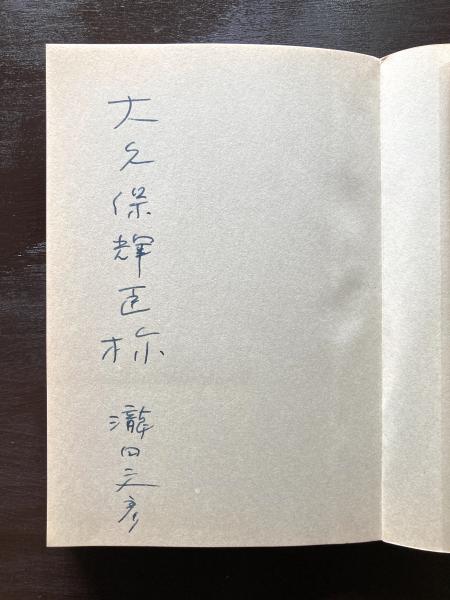 大久保輝臣様
瀧田文彦